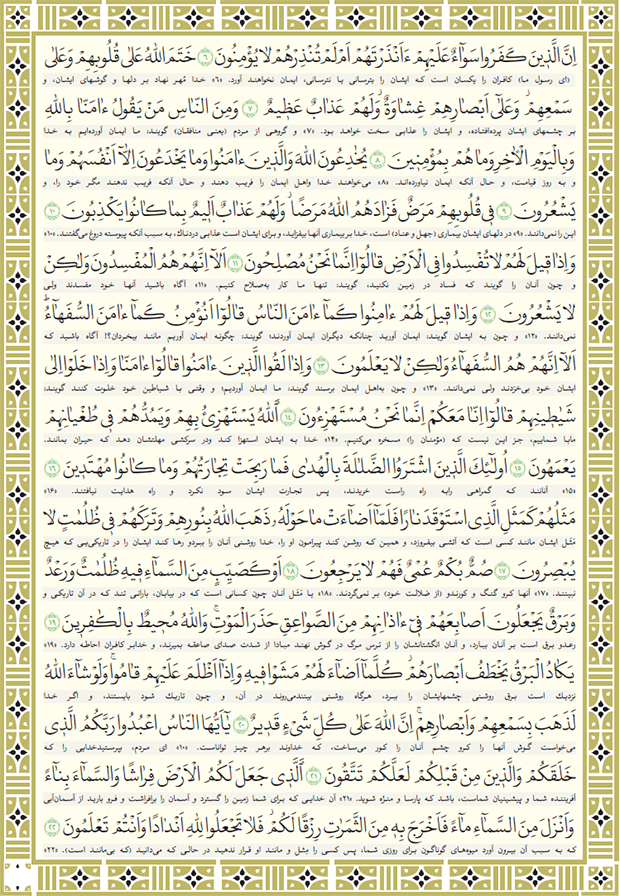 اِنَّ الَّذينَ كَفَرُوا سَوآءٌ عَلَيْهِمْ ءَاَنْذَرْتَهُمْ اَمْ لَمْ تُنْذِرْهُمْ لا يُؤْمِنُونَ ﴿٦﴾ خَتَمَ اللهُ عَلى قُلُوبِهِمْ وَعَلى
(ای رسول ما) کافران را یکسان است که ایشان را بترسانی یا نترسانی، ایمان نخواهند آورد. «۶» خدا مُهر نهاد بر دلها و گوشهای ایشان، و
سَمْعِهِمْ وَعَلى اَبْصارِهِمْ غِشاوَةٌ وَلَهُمْ عَذابٌ عَظيمٌ ﴿٧﴾ وَمِنَ النّاسِ مَنْ يَقُولُ ءامَنّا بِاللهِ
بر چشمهای ایشان پرده‌افتاده، و ایشان را عذابی سخت خواهد بود. «۷» و گروهی از مردم (یعنی منافقان) گویند: ما ایمان آورده‌ایم به خدا
وَبِالْيَوْمِ الْاخِرِ وَما هُمْ بِمُؤْمِنينَ ﴿٨﴾ يُخادِعُونَ اللهَ وَالَّذينَ ءامَنُوا وَما يَخْدَعُونَ اِلّا اَنْفُسَهُمْ وَما
و به روز قیامت، و حال آنکه ایمان نیاورده‌اند. «۸» می‌خواهند خدا واهل ایمان را فریب دهند و حال آنکه فریب ندهند مگر خود را، و
يَشْعُرُونَ ﴿٩﴾ فى قُلُوبِهِمْ مَرَضٌ فَزادَهُمُ اللهُ مَرَضًا وَلَهُمْ عَذابٌ اَليمٌ بِما كانُوا يَكْذِبُونَ ﴿١٠﴾
این را نمی‌دانند. «۹» در دلهای ایشان بیماری (جهل و عناد) است، خدا بر بیماری آنها بیفزاید، و برای ایشان است عذابی دردناک، به سبب آنکه پیوسته دروغ می‌گفتند. «۱۰»
وَاِذا قيلَ لَهُمْ لا تُفْسِدُوا فِى الْاَرْضِ قالُوا اِنَّما نَحْنُ مُصْلِحُونَ ﴿١١﴾ اَلا اِنَّهُمْ هُمُ الْمُفْسِدُونَ وَلكِنْ
و چون آنان را گویند که فساد در زمین نکنید، گویند: تنها ما کار به‌صلاح کنیم. «۱۱» آگاه باشید آنها خود مفسدند ولی
لا يَشْعُرُونَ ﴿١٢﴾ وَاِذا قيلَ لَهُمْ ءامِنُوا كَمآ ءامَنَ النّاسُ قالُوا اَنُؤْمِنُ كَمآ ءامَنَ السُّفَهآءُ
نمی‌دانند. «۱۲» و چون به ایشان گویند: ایمان آورید چنانکه دیگران ایمان آوردند؛ گویند: چگونه ایمان آوریم مانند بیخردان؟! آگاه باشید که
اَلا اِنَّهُمْ هُمُ السُّفَهآءُ وَلكِنْ لا يَعْلَمُونَ ﴿١٣﴾ وَاِذا لَقُوا الَّذينَ ءامَنُوا قالُوا ءامَنّا وَاِذا خَلَوْا اِلى
ایشان خود بی‌خردند ولی نمی‌دانند. «۱۳» و چون به‌اهل ایمان برسند گویند: ما ایمان آوردیم؛ و وقتی با شیاطین خود خلوت کنند گویند:
شَياطينِهِمْ قالُوا اِنّا مَعَكُمْ اِنَّما نَحْنُ مُسْتَهْزِءُونَ ﴿١٤﴾ اَللهُ يَسْتَهْزِئُ بِهِمْ وَيَمُدُّهُمْ فى طُغْيانِهِمْ
مابا شماییم، جز این نیست که (مؤمنان را) مسخره می‌کنیم. «۱۴» خدا به ایشان استهزا کند ودر سرکشی مهلتشان دهد که حیران بمانند.
يَعْمَهُونَ ﴿١٥﴾ اُولئِكَ الَّذينَ اشْتَرَوُا الضَّلالَةَ بِالْهُدى فَما رَبِحَتْ تِجارَتُهُمْ وَما كانُوا مُهْتَدينَ ﴿١٦﴾
«۱۵» آنانند که گمراهی رابه راه راست خریدند، پس تجارت ایشان سود نکرد و راه هدایت نیافتند. «۱۶»
مَثَلُهُمْ كَمَثَلِ الَّذِى اسْتَوْقَدَ نارًا فَلَمّآ اَضآءَتْ ما حَوْلَهُ ذَهَبَ اللهُ بِنُورِهِمْ وَتَرَكَهُمْ فى ظُلُماتٍ لا
مَثَل ایشان مانند کسی است که آتشی بیفروزد، و همین که روشن کند پیرامون او را، خدا روشنی آنان را ببرد و رها کند ایشان را در تاریکی‌یی که هیچ
يُبْصِرُونَ ﴿١٧﴾ صُمٌّ بُكْمٌ عُمْىٌ فَهُمْ لا يَرْجِعُونَ ﴿١٨﴾ اَوْ كَصَيِّبٍ مِنَ السَّمآءِ فيهِ ظُلُماتٌ وَرَعْدٌ
نبینند. «۱۷» آنها کرو گنگ و کورندو (از ضلالت خود) بر نمی‌گردند. «۱۸» یا مَثَل آنان چون کسانی است که در بیابان، بارانی تند که در آن تاریکی و
وَبَرْقٌ يَجْعَلُونَ اَصابِعَهُمْ فى ءاذانِهِمْ مِنَ الصَّواعِقِ حَذَرَ الْمَوْتِ وَاللهُ مُحيطٌ بِالْكافِرينَ ﴿١٩﴾
رعدو برق است بر آنان ببارد، و آنان انگشتانشان را از ترس مرگ در گوش نهند مبادا از شدت صدای صاعقه بمیرند، و خدابر کافران احاطه دارد. «۱۹»
يَكادُ الْبَرْقُ يَخْطَفُ اَبْصارَهُمْ كُلَّمآ اَضآءَ لَهُمْ مَشَوْا فيهِ وَاِذآ اَظْلَمَ عَلَيْهِمْ قامُوا وَلَوْ شآءَ اللهُ
نزدیک است برق روشنی چشمهایشان را ببرد، هرگاه روشنی بینندمی‌روند در آن، و چون تاریک شود بایستند، و اگر خدا
لَذَهَبَ بِسَمْعِهِمْ وَاَبْصارِهِمْ اِنَّ اللهَ عَلى كُلِّ شَىْءٍ قَديرٌ ﴿٢٠﴾ يآ اَيُّهَا النّاسُ اعْبُدُوا رَبَّكُمُ الَّذى
می‌خواست گوش آنها را کرو چشم آنان را کور می‌ساخت، که خداوند برهر چیز تواناست. «۲۰» ای مردم، بپرستیدخدایی را که
خَلَقَكُمْ وَالَّذينَ مِنْ قَبْلِكُمْ لَعَلَّكُمْ تَتَّقُونَ ﴿٢١﴾ اَلَّذى جَعَلَ لَكُمُ الْاَرْضَ فِراشًا وَالسَّمآءَ بِنآءً
آفریننده شما و پیشینیان شماست، باشد که پارسا و منزّه شوید. «۲۱» آن خدایی که برای شما زمین را گسترد و آسمان را برافراشت و فرو بارید از آسمان‌آبی
وَاَنْزَلَ مِنَ السَّمآءِ مآءً فَاَخْرَجَ بِهِ مِنَ الثَّمَراتِ رِزْقًا لَكُمْ فَلا تَجْعَلُوا لِلهِ اَنْدادًا وَاَنْتُمْ تَعْلَمُونَ ﴿٢٢﴾
که به سبب آن بیرون آورد میوه‌های گوناگون برای روزی شما، پس کسی را مِثل و مانند او قرار ندهید در حالی که می‌دانید (که بی‌مانند است). «۲۲»